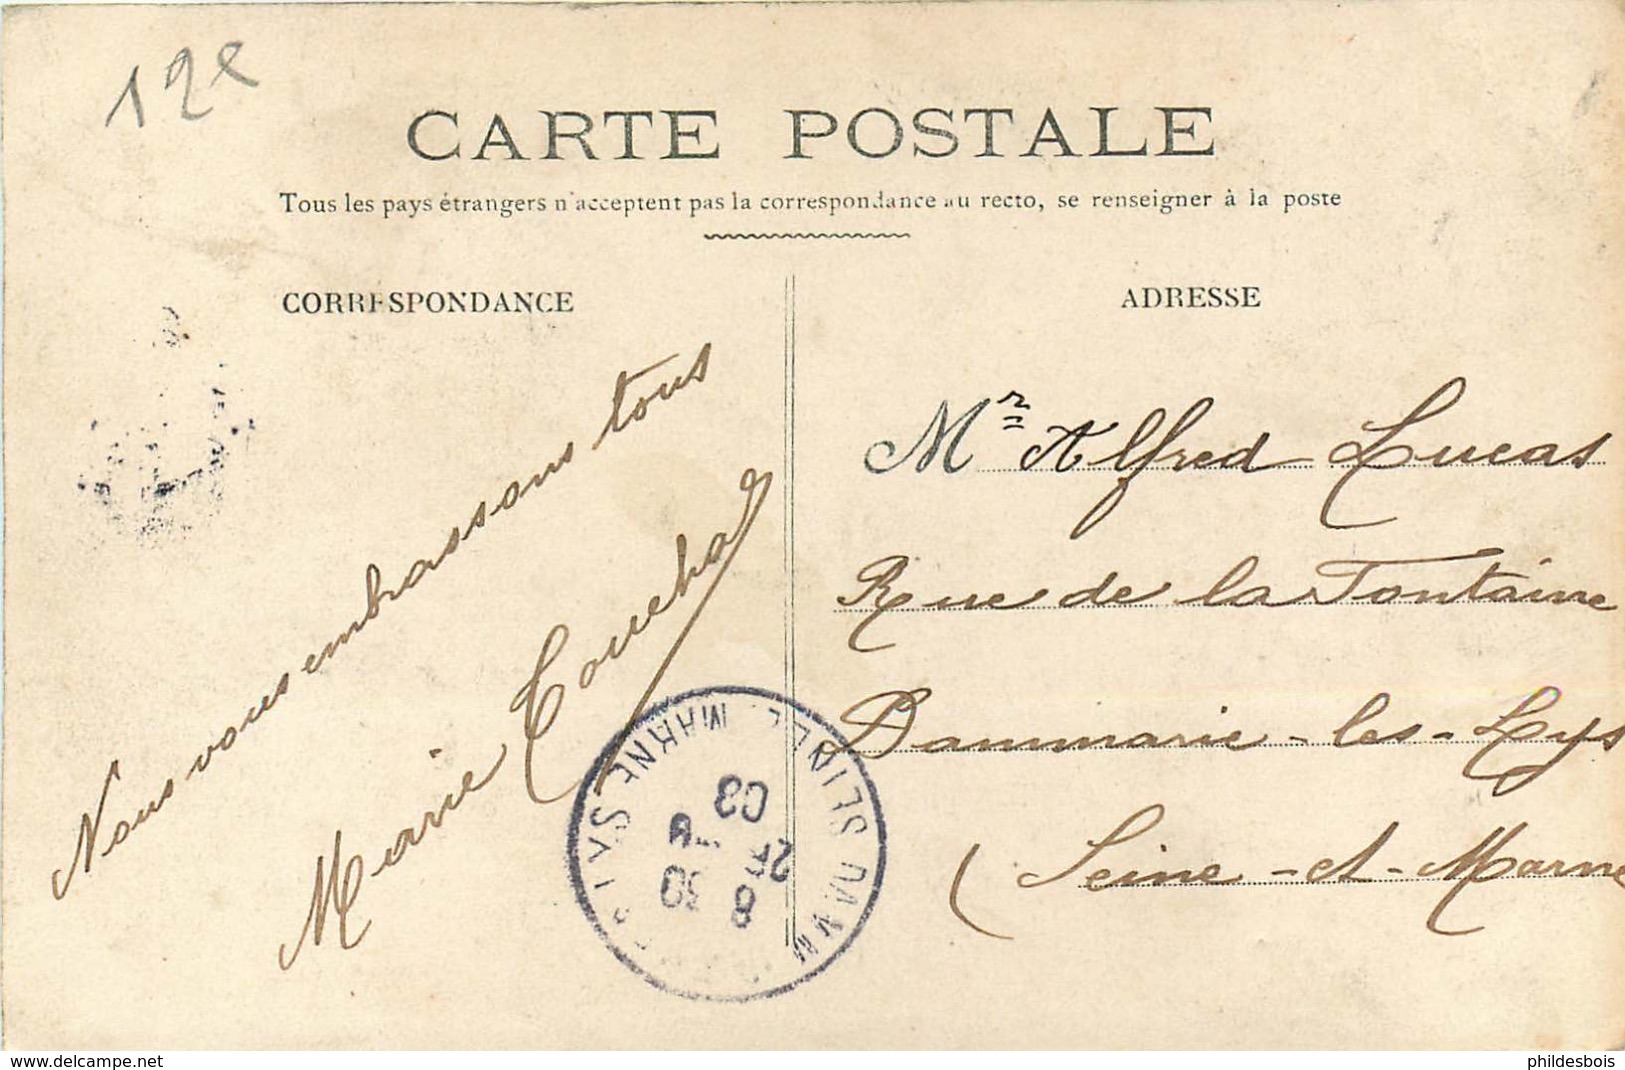 12e
CARTE POSTALE
Tous les pays étrangers n'acceptent pas la correspondance au recto, se renseigner à la poste
CORRESPONDANCE
Nous vous embrassons tous
Marie
ADRESSE
Mr Alfred Lucas
Rue de la Fontaine
Dammarie-les-Lys
(Seine-et-Marne
8 30
03
www.delcampe.net
phildesbois